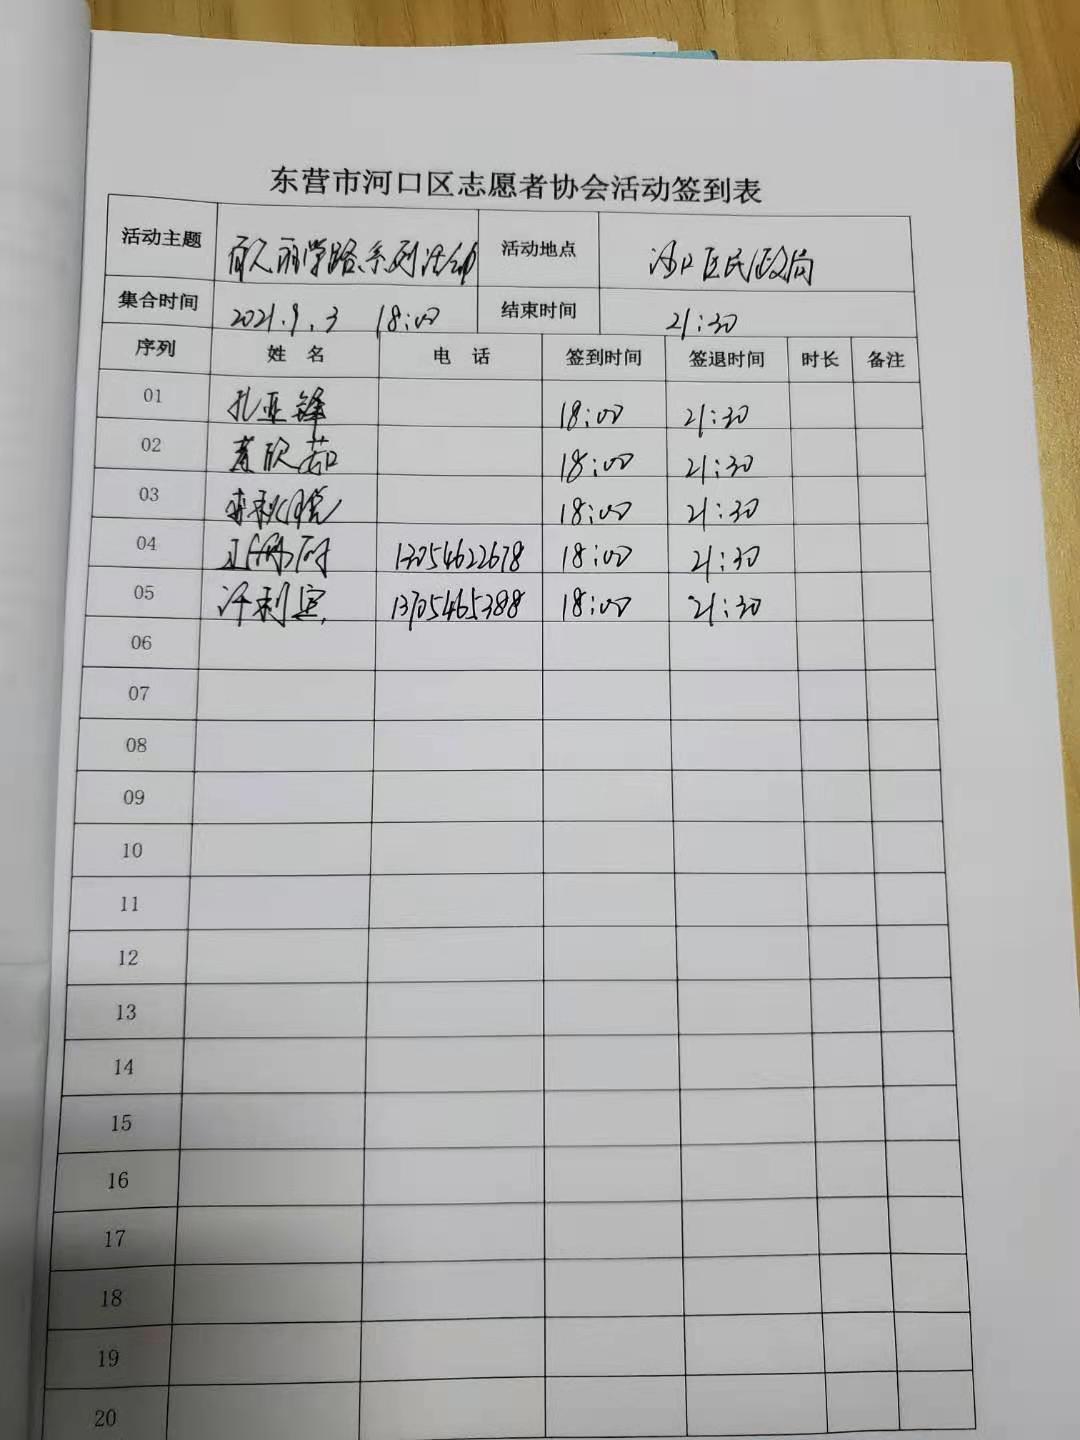 东营市河口区志愿者协会活动签到表
活动主题 系列活动 活动地点 河口区民政局
集合时间 2021.9.3 18:00 结束时间 21:30
序列 姓名 电话 签到时间 签退时间 时长 备注
01 亚锋 18:00 21:30
02 欣茹 18:00 21:30
03 18:00 21:30
04 13054622678 18:00 21:30
05 许利 13705465388 18:00 21:30
06
07
08
09
10
11
12
13
14
15
16
17
18
19
20